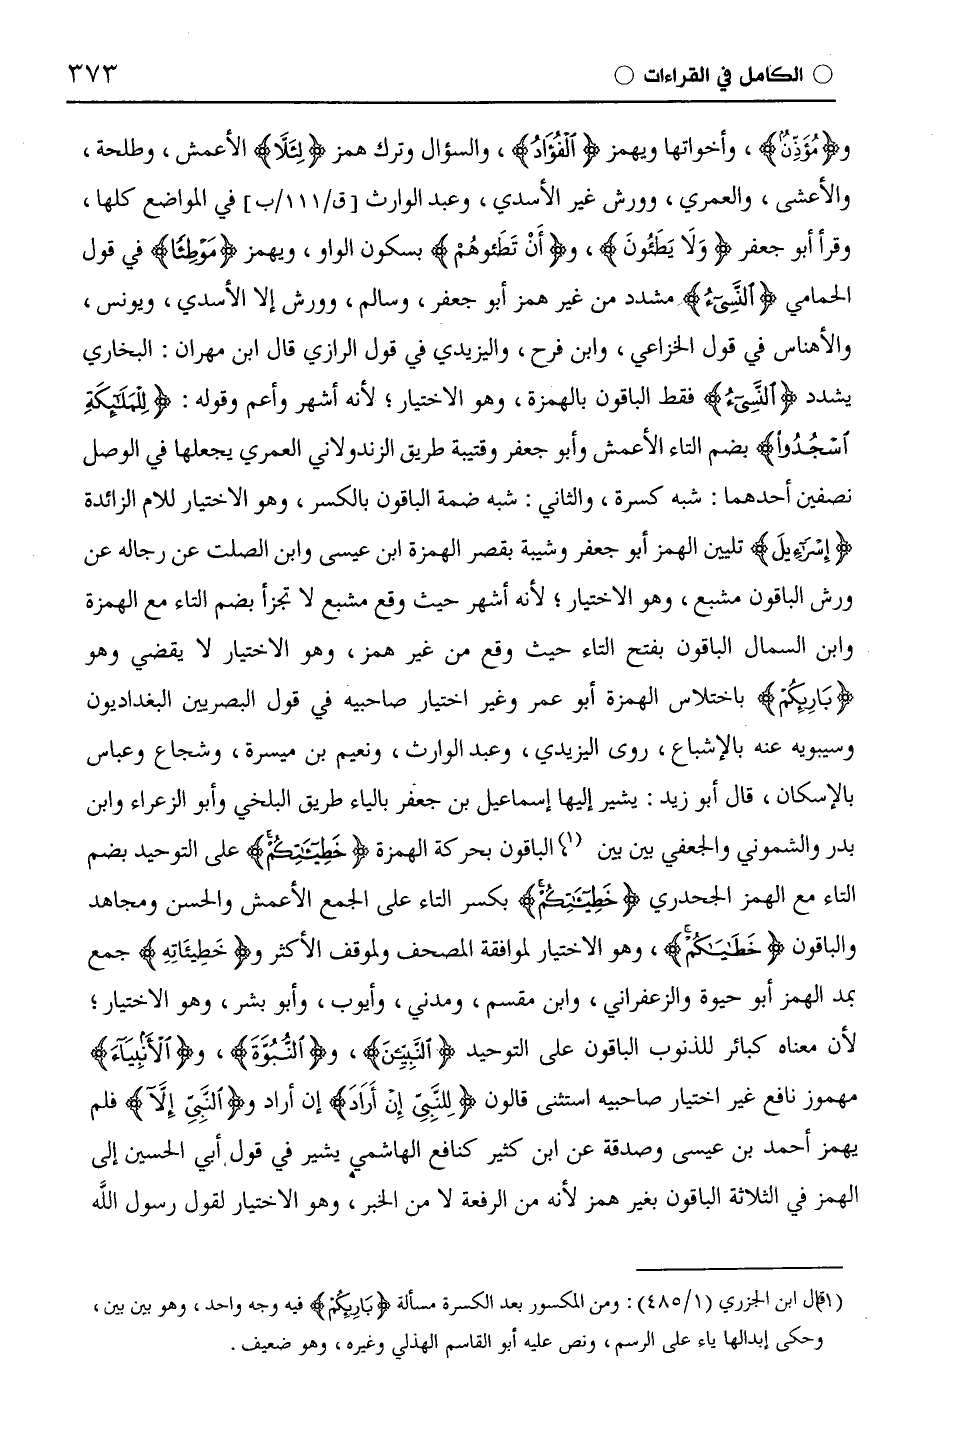 ○ الكامل في القراءات ○ ٣٧٣
و﴿مُؤَذِّنٌ﴾ ، وأخواتها ويهمز ﴿ ٱلْفُؤَادُ﴾ ، والسؤال وترك همز ﴿لِئَلَّا﴾ الأعمش ، وطلحة ،
والأعشى ، والعمري ، وورش غير الأسدي ، وعبد الوارث [ق/١١١/ب] في المواضع كلها ،
وقرأ أبو جعفر ﴿ وَلَا يَطَئُونَ ﴾ ، و﴿ أَنْ تَطَئُوهُمْ ﴾ بسكون الواو ، ويهمز ﴿مَوْطِئًا﴾ في قول
الحمامي ﴿ٱلنَّسِىٓءُ﴾ مشدد من غير همز أبو جعفر ، وسالم ، وورش إلا الأسدي ، ويونس ،
والأهناس في قول الخزاعي ، وابن فرح ، واليزيدي في قول الرازي قال ابن مهران : البخاري
يشدد ﴿ٱلنَّسِىٓءُ﴾ فقط الباقون بالهمزة ، وهو الاختيار ؛ لأنه أشهر وأعم وقوله : ﴿ لِلْمَلَٰٓئِكَةِ
ٱسْجُدُوا۟﴾ بضم التاء الأعمش وأبو جعفر وقتيبة طريق الزندولاني العمري يجعلها في الوصل
نصفين أحدهما : شبه كسرة ، والثاني : شبه ضمة الباقون بالكسر ، وهو الاختيار للام الزائدة
﴿إِسْرَٰٓءِيلَ﴾ تليين الهمز أبو جعفر وشيبة بقصر الهمزة ابن عيسى وابن الصلت عن رجاله عن
ورش الباقون مشبع ، وهو الاختيار ؛ لأنه أشهر حيث وقع مشبع لا تجزأ بضم التاء مع الهمزة
وابن السمال الباقون بفتح التاء حيث وقع من غير همز ، وهو الاختيار لا يقضي وهو
﴿بَارِيِكُمْ﴾ باختلاس الهمزة أبو عمر وغير اختيار صاحبيه في قول البصريين البغداديون
وسيبويه عنه بالإشباع ، روى اليزيدي ، وعبد الوارث ، ونعيم بن ميسرة ، وشجاع وعباس
بالإسكان ، قال أبو زيد : يشير إليها إسماعيل بن جعفر بالياء طريق البلخي وأبو الزعراء وابن
بدر والشموني والجعفي بين بين (١)؛ الباقون بحركة الهمزة ﴿خَطِيٓـَٰٔتِكُمْ﴾ على التوحيد بضم
التاء مع الهمز الجحدري ﴿خَطِيٓـَٰٔتِكُمْ﴾ بكسر التاء على الجمع الأعمش والحسن ومجاهد
والباقون ﴿خَطَٰيَٰكُمْ﴾ ، وهو الاختيار لموافقة المصحف ولموقف الأكثر و﴿ خَطِيئَاتِهِ ﴾ جمع
بمد الهمز أبو حيوة والزعفراني ، وابن مقسم ، ومدني ، وأيوب ، وأبو بشر ، وهو الاختيار ؛
لأن معناه كبائر للذنوب الباقون على التوحيد ﴿ٱلنَّبِيِّـۧنَ﴾ ، و﴿ٱلنُّبُوَّةَ﴾ ، و﴿ٱلْأَنۢبِيَآءَ﴾
مهموز نافع غير اختيار صاحبيه استثنى قالون ﴿لِلنَّبِيِّ إِنْ أَرَادَ﴾ إن أراد و﴿ٱلنَّبِيِّ إِلَّآ﴾ فلم
يهمز أحمد بن عيسى وصدقة عن ابن كثير كنافع الهاشمي يشير في قول أبي الحسين إلى
الهمز في الثلاثة الباقون بغير همز لأنه من الرفعة لا من الخبر ، وهو الاختيار لقول رسول الله
(١) قال ابن الجزري (١/ ٤٨٥) : ومن المكسور بعد الكسرة مسألة ﴿بَارِيِكُمْ﴾ فيه وجه واحد ، وهو بين بين ،
وحكى إبدالها ياء على الرسم ، ونص عليه أبو القاسم الهذلي وغيره ، وهو ضعيف .